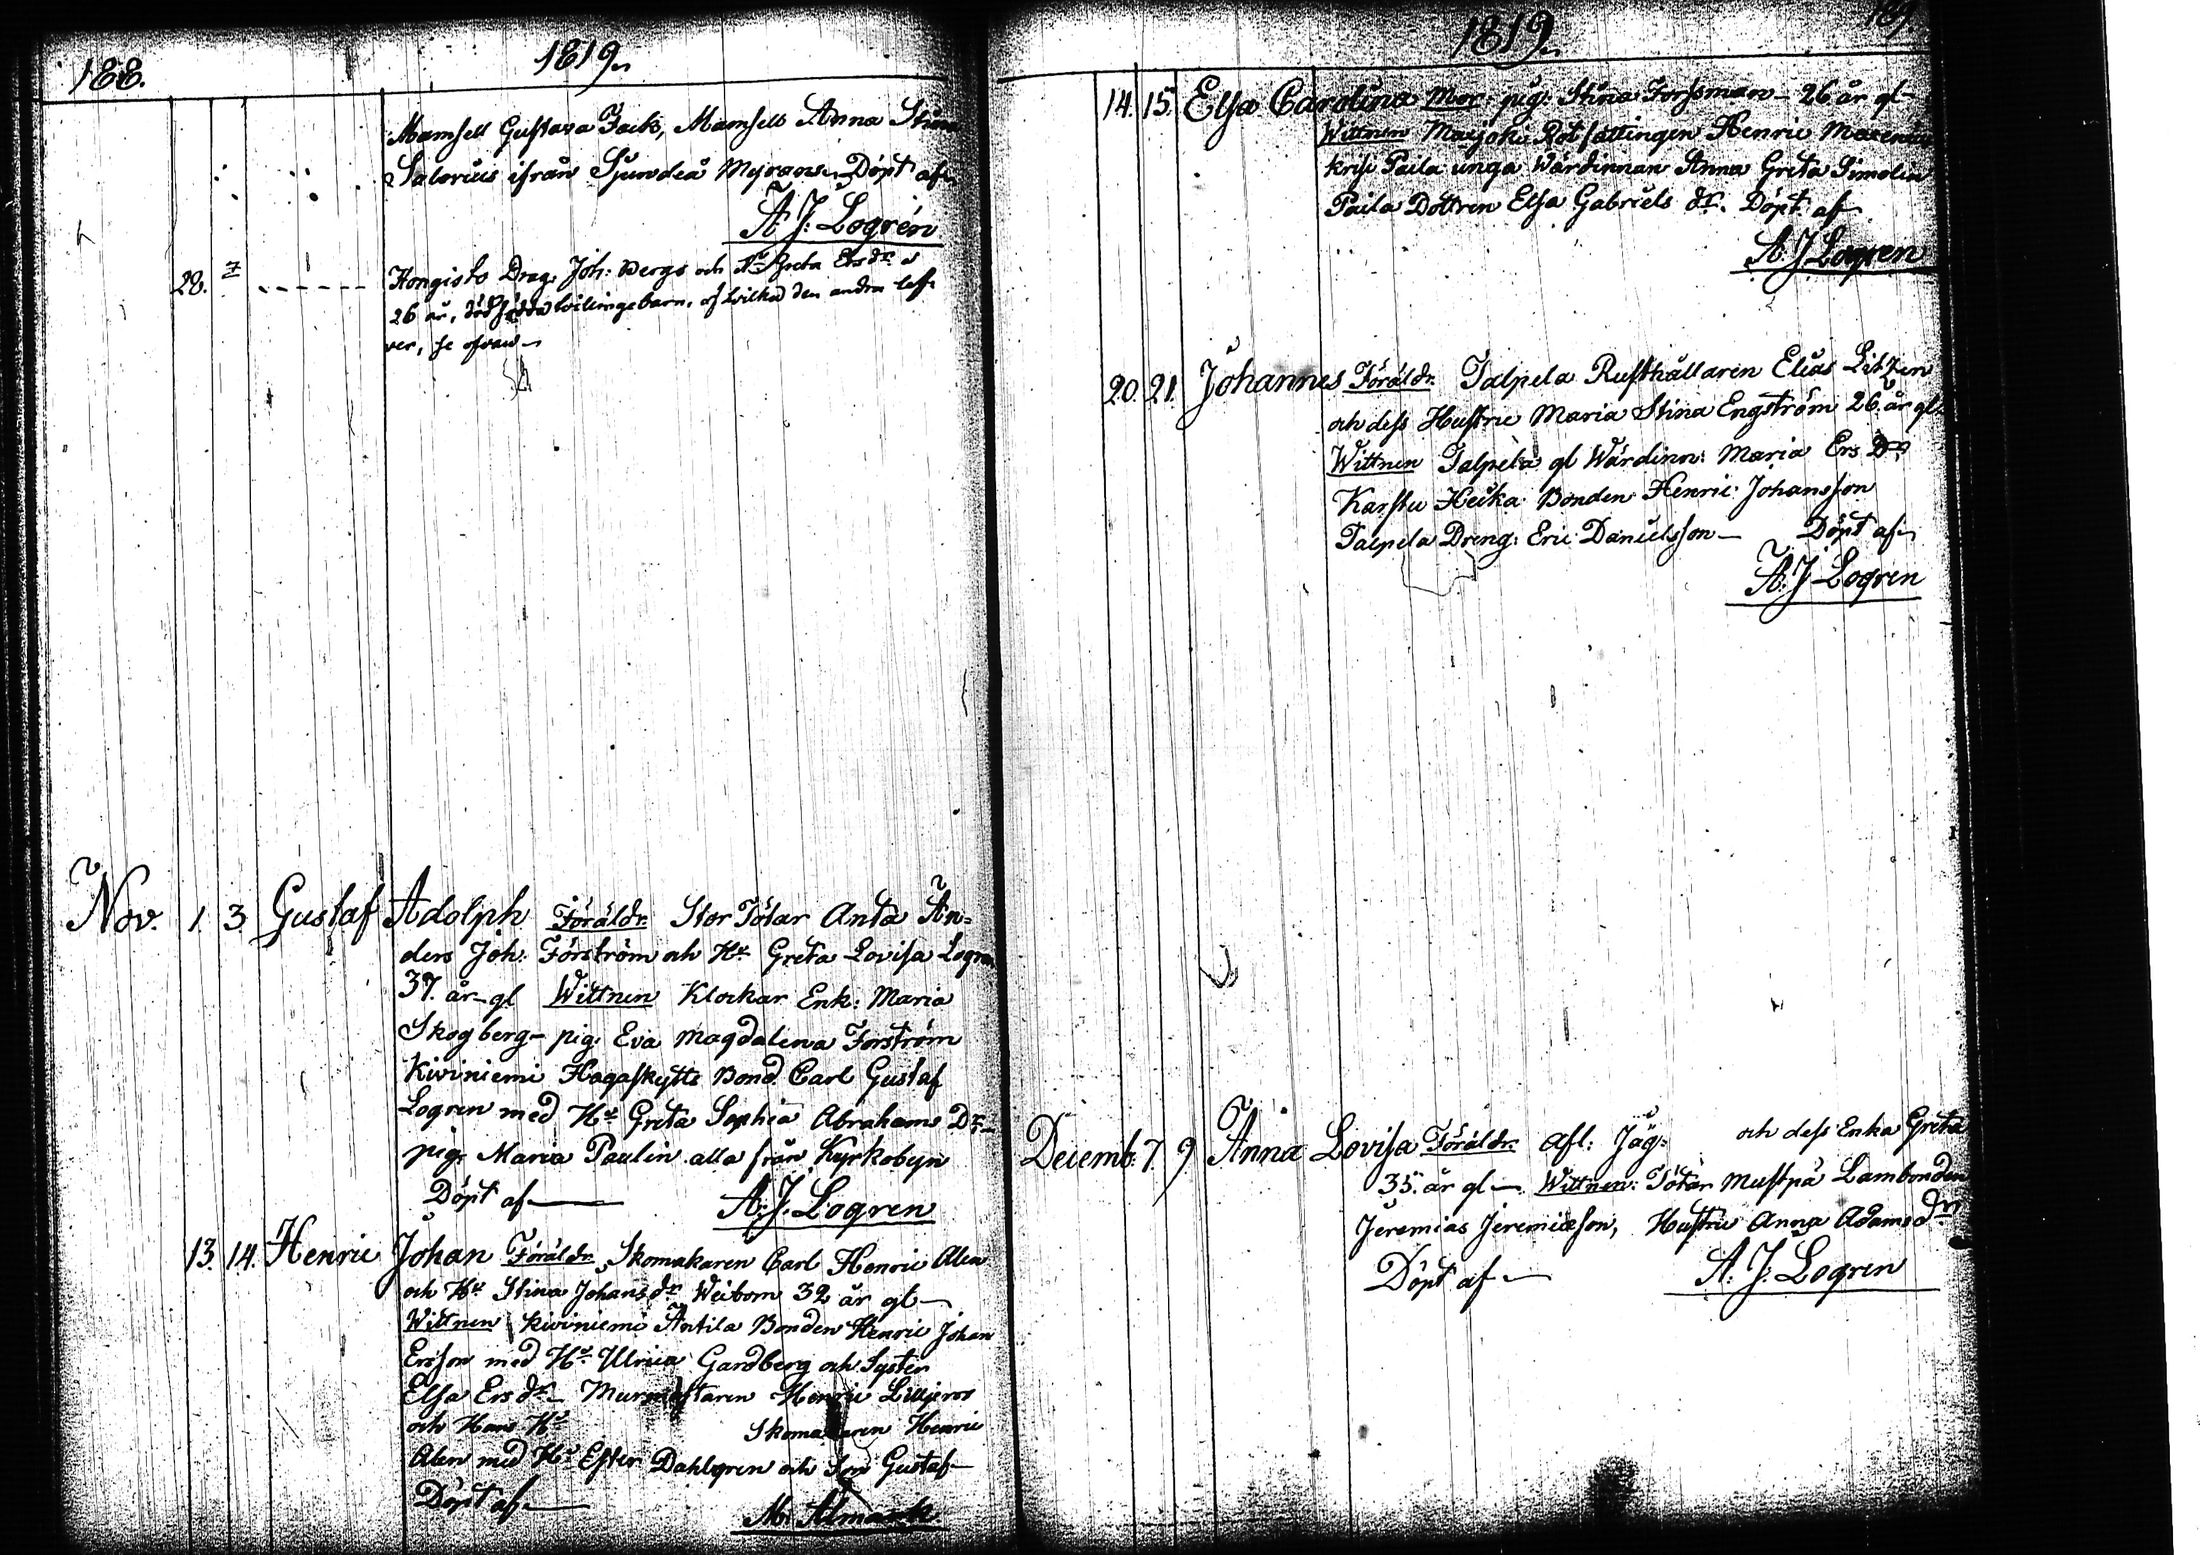 188.
1819.
Mamsell Gustava Facks, Mamsell Anna Stina
Salovius ifrån Sjundeå Myrans. Döpt af
A J: Logrén
28. Hongisto Drag: Joh: Bergs och Hu Greta Ersdr
26 år, dödfödda twillingebarn, af hvilka den andra lef-
ver, se ofvan
Nov. 1. 3. Gustaf Adolph Föräldr. Stor Tötar Anta An-
ders Joh: Förström och Hu Greta Lovisa Logren
37. år gl Wittnen Klockar Enk: Maria
Skogberg - pig: Eva Magdalena Forström
Kiviniemi Hagaskytte Bond Carl Gustaf
Logren med Hu Greta Sophia Abrahams Dr
pig: Maria Paulin alla från Kyrkobyn
Döpt af A: J. Logren
13. 14. Henric Johan Föräldr. Skomakaren Carl Henric Alen
och Hu Stina Johansdr Weibom 32 år gl
Wittnen Kiviniemi Antila Bonden Henric Johan
Ersson med Hu Ulrica Gardberg och Syster
Elsa Ersdr Murmästaren Henric Lilljeros
och Hans Hu Skomakaren Henric
Alen med Hu Ester Dahlgren och Son Gustaf
Döpt af M: Almark
1819.
189.
14. 15. Elsa Carolina Mor: pig: Stina Forssman - 26 år gl
Wittnen Marjoki Rotsättingen Henric
Paila unga Wärdinnan Anna Greta Simelia
Paila Dottren Elsa Gabriels dr. Döpt af
A. J Logren
20. 21. Johannes Föräldr. Talpela Rusthållaren Elias Litzen
och dess Hustru Maria Stina Engström 26 år gl.
Wittnen Talpela gl Wärdinn: Maria Ers Dr
Karstu Heika Bonden Henric Johansson
Talpela Dreng: Eric Danielsson Döpt af
A: J Logren
Decemb: 7. 9 Anna Lovisa Föräldr. afl: Jäg: och dess Enka Greta
35. år gl Wittnen: Tötar Mustpä Lambonden
Jeremias Jeremiæson, Hustru Anna Adams dr
Döpt af A. J. Logren